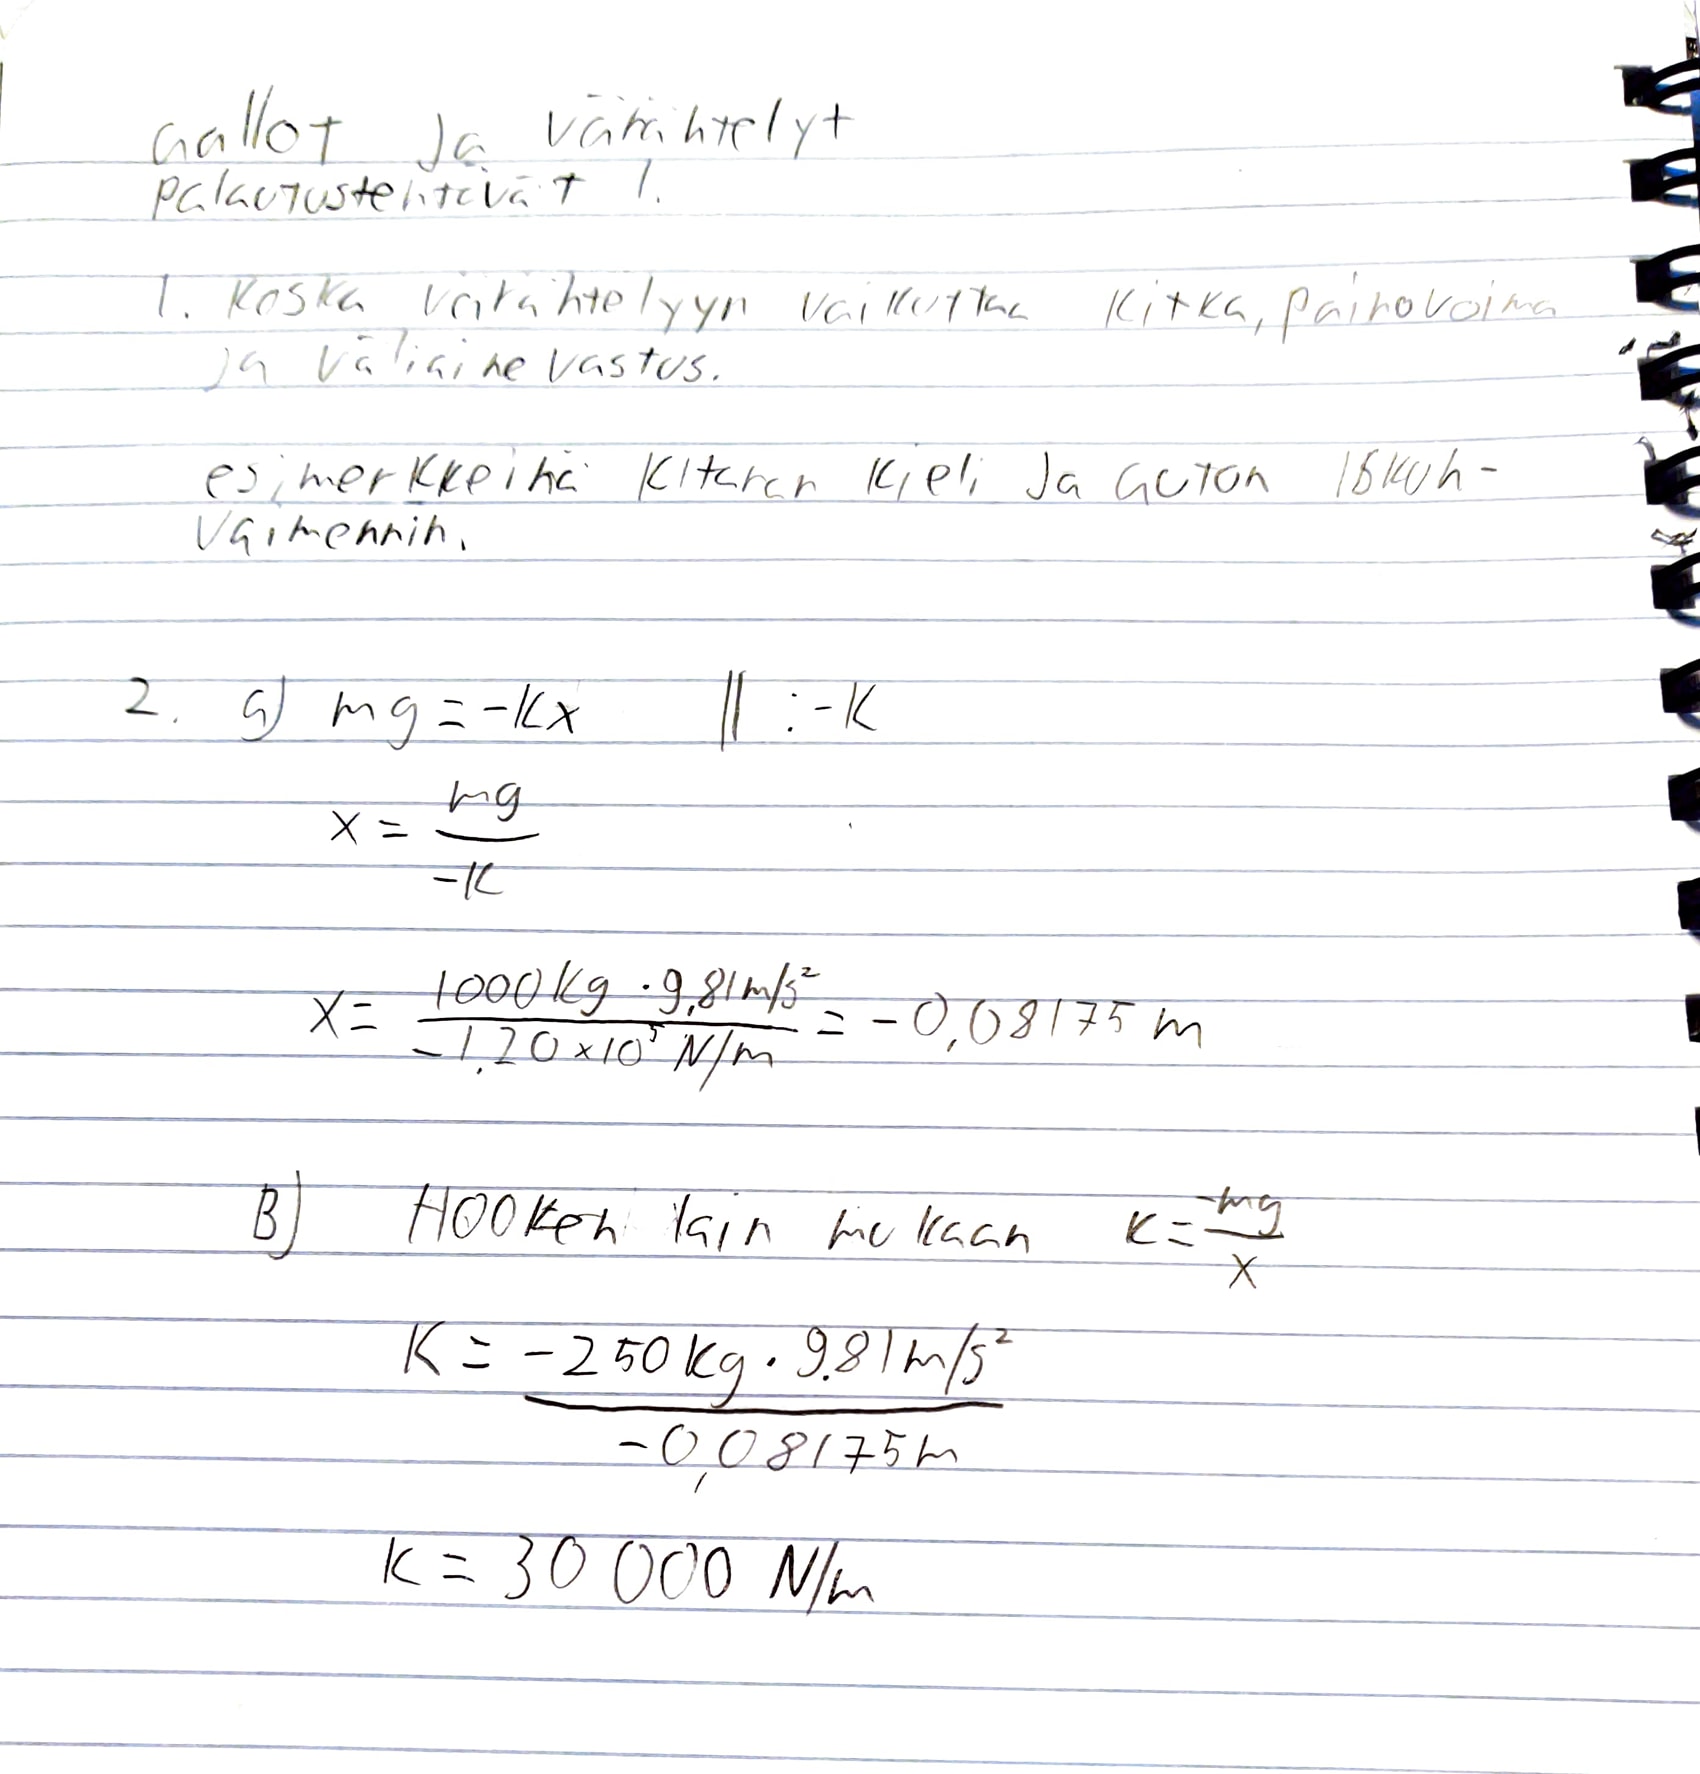 Aallot ja värähtelyt
Palautustehtävät 1.
1. Koska värähtelyyn vaikuttaa kitka, painovoima
ja väliaine vastus.
esimerkkeinä kitaran kieli ja auton iskun-
vaimennin.
2. a) mg = -kx || : -k
x = mg / -k
x = 1000 kg · 9,81 m/s² / -1,20 × 10⁵ N/m = -0,08175 m
B) HOOKen lain mukaan K = -mg / x
K = -250 kg · 9,81 m/s² / -0,08175 m
K = 30 000 N/m